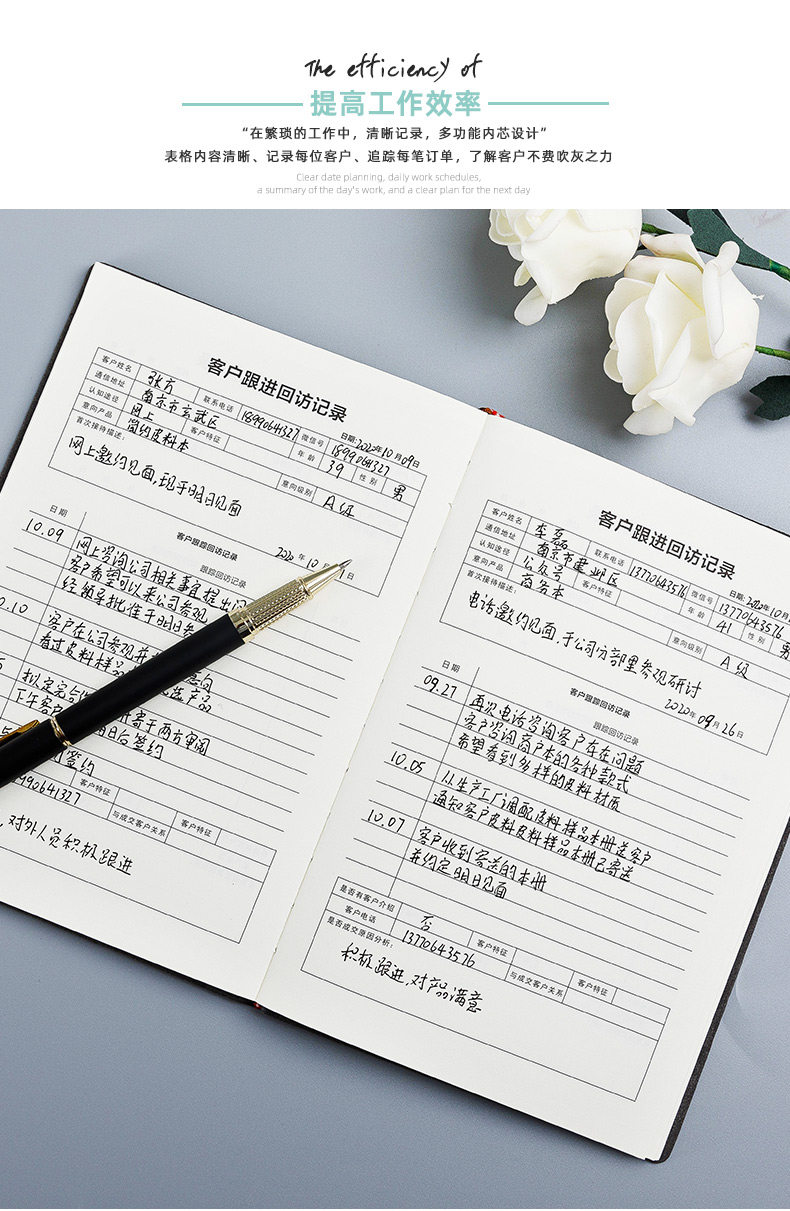 The efficiency of
提高工作效率
“在繁琐的工作中，清晰记录，多功能内芯设计”
表格内容清晰、记录每位客户、追踪每笔订单，了解客户不费吹灰之力
Clear date planning, daily work schedules,
a summary of the day's work, and a clear plan for the next day
客户跟进回访记录
日期: 2020年10月09日
客户姓名 张方 联系电话 18990641327 微信号 18990641327
通信地址 南京市玄武区 年龄 39 性别 男
认知途径 网上 客户特征
意向产品 简约皮料本 意向级别 A级
首次接待描述:
网上邀约见面,现于明日见面
2020年10月 1日
客户跟踪回访记录
日期 跟踪回访记录
10.09 网上咨询公司相关事宜提出问
客户希望可以来公司参观
经领导批准于明日参
0.10 客户在公司参观并 意向
看过皮料样品 选产品
拟定完合 寄于两方审阅
下午客户 日后签约
签约
8990641327 客户特征
与成交客户关系 客户特征
,对外人员积极跟进
客户跟进回访记录
日期: 2020年10月
客户姓名 李磊 联系电话 13770643576 微信号 13770643576
通信地址 南京市建邺区 年龄 41 性别 男
认知途径 公众号 客户特征
意向产品 商务本 意向级别 A级
首次接待描述:
电话邀约见面,于公司分部里参观研讨
2020年09月26日
客户跟踪回访记录
日期 跟踪回访记录
09.27 再次电话咨询客户存在问题
客户咨询商户本的各种款式
希望看到多样的皮料材质
10.05 从生产工厂调配皮料样品本册送客户
通知客户皮料皮料样品本册已寄送
10.07 客户收到寄送的本册
并约定明日见面
是否有客户介绍 否
客户电话 13770643576 客户特征
是否成交原因分析: 与成交客户关系 客户特征
积极跟进,对产品满意